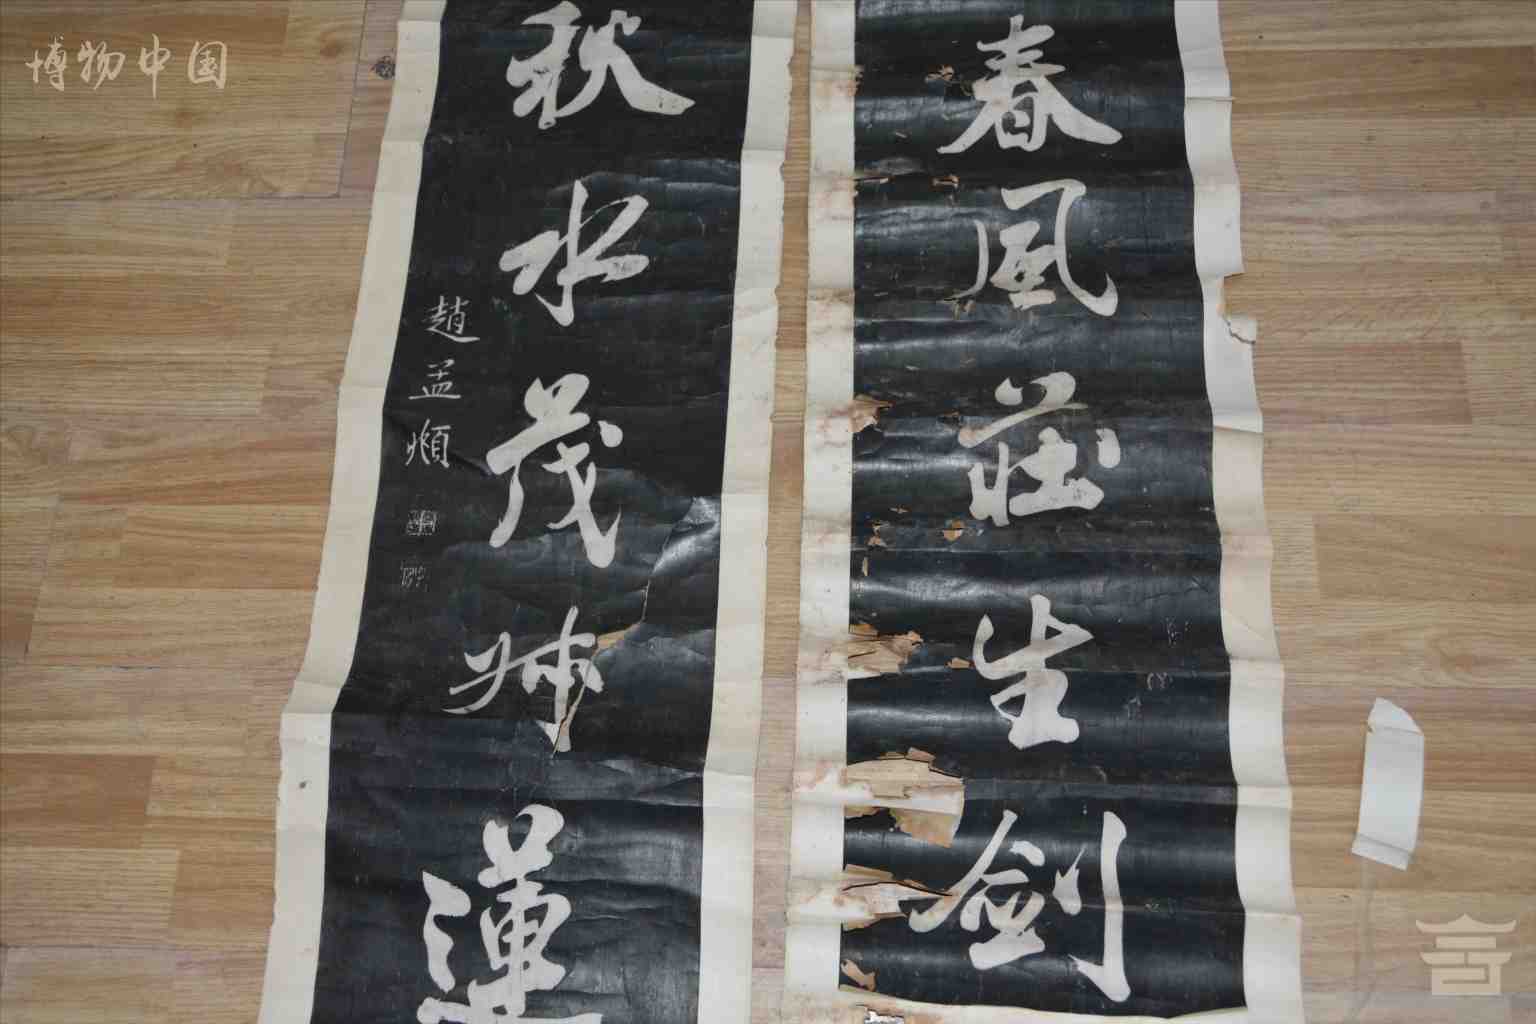 博物中国
春風莊生劍
秋水茂叔蓮
趙孟頫